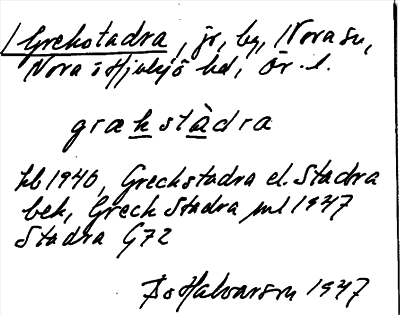 Grekstadra, jr, by, Nora sn,
Nora o Hjulsjö hd, Ör. l.
grækstàdra
kb 1940, Greckstadra el. Stadra
bek, Greck Stadra jnl 1947
Stadra G72
Halvarson 1947